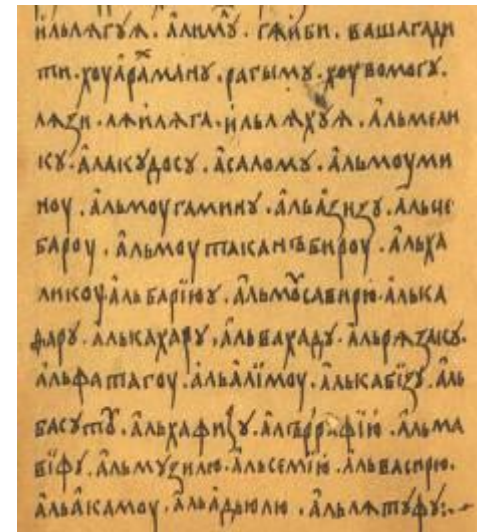 и҆льлѧгуѧ . а҆лимъ . гѧиби . вашагади
ти . хоуа҆раману . рагыму . хоувомогу .
лѧзи . лѧилѧга . ильлѧхуѧ . а҆льмели
ку . а҆лакудосу . а҆салому . а҆льмоуми
ноу . а҆льмоугамину . а҆льазизу . а҆льче
бароу . а҆льмоутаканъбироу . а҆льха
ликоу а҆льбарїюу . а҆льмусавирю . а҆лька
фару . а҆лькахару . а҆львахаду . а҆льрѧзаку .
а҆льфатагоу . а҆льалїмоу . а҆лькабїзу . а҆ль
басуту . а҆льхафизу . а҆лъррафїю . а҆льма
вїфу . а҆льмузилю . а҆льсемїю . а҆львасирю .
а҆льакамоу . а҆льадьюлю . а҆льлѧтуфу :~